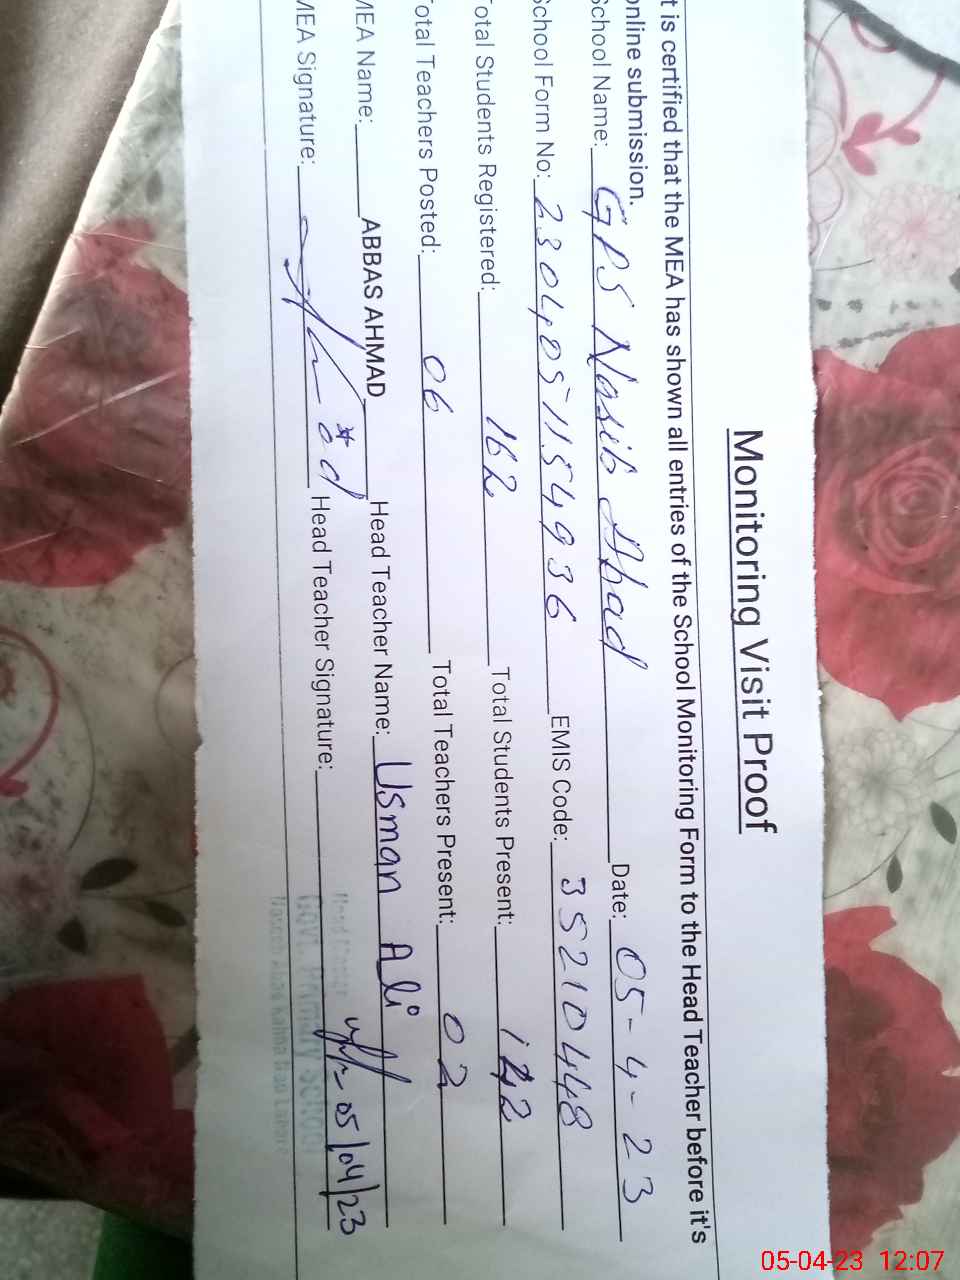 Monitoring Visit Proof
t is certified that the MEA has shown all entries of the School Monitoring Form to the Head Teacher before it's
online submission.
School Name: GPS Nasib Abad Date: 05-4-23
School Form No: 23040511154936 EMIS Code: 35210448
Total Students Registered: 162 Total Students Present: 142
Total Teachers Posted: 06 Total Teachers Present: 02
MEA Name: ABBAS AHMAD Head Teacher Name: Usman Ali
MEA Signature: Head Teacher Signature: 05/04/23
Govt. Primary School
05-04-23 12:07